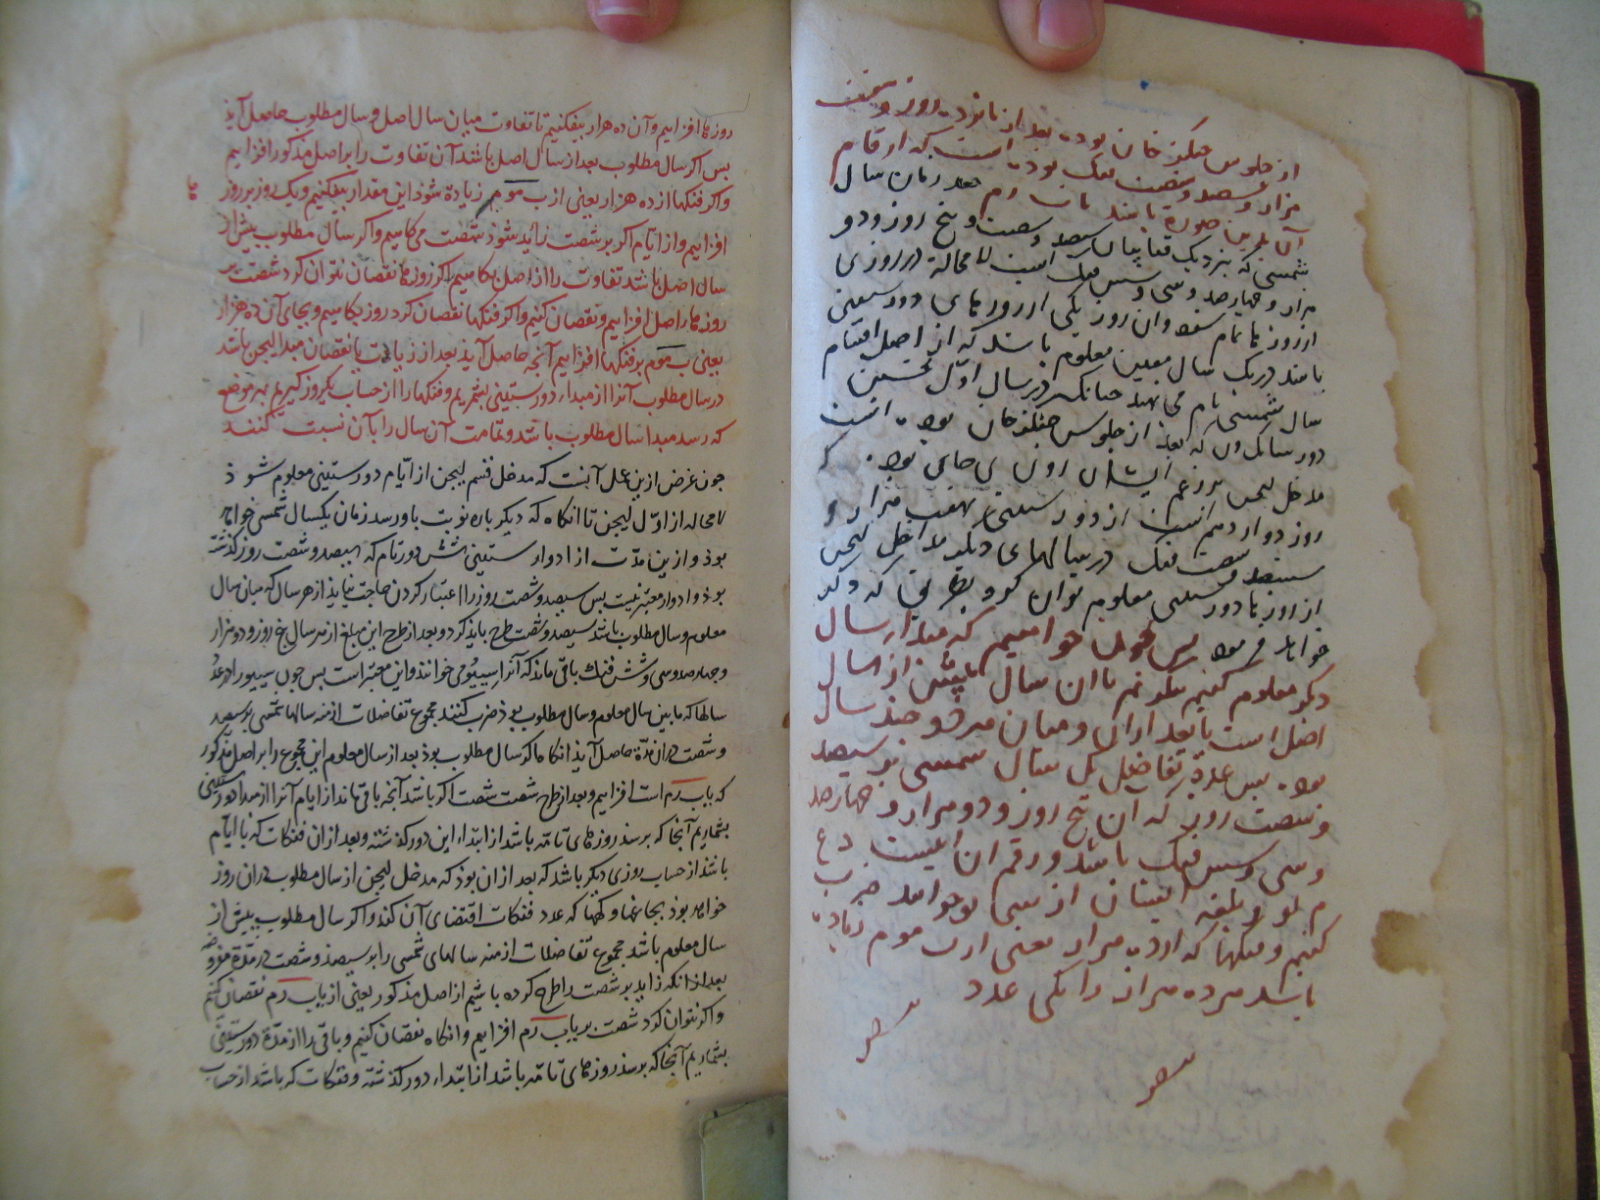 از جلوس چنکز خان بوده بعد از پانزده روز و هفت
هزار و سیصد و شصت فنک بوده است که ارقام
آن برین صورة باشد
شمسی که بنزدیک قتاییان سیصد و شصت و پنج روز و دو
هزار و چهارصد و سی و شش فنک است لا محالة در روزی
از روزها تمام شود و آن روز یکی از روزهای دور ستینی
باشد در یک سال معین معلوم باشد که از اصل اقسام
سال شمسی نام می نهند چنانکه در سال اول نخستین
دور سانک ون که بعد از جلوس چنکز خان بوده است
مدخل لیجن بزعم ایشان روز بی جای بود
روز دوازدهم است از دور ستینی بهفت هزار و
ششصد و شصت فنک در سالهای دیکر مداخل لیجن
از روزها دور ستینی معلوم توان کرد بطریقی که ذکر
خواهد بود پس چون خواهیم که مبدا از سال
دیکر معلوم کنیم بنکریم تا آن سال پیش از سال
اصل است یا بعد از آن و میان هر دو چند سال
بود پس عدة تفاضل کل سال شمسی بر سیصد
و شصت روز که آن پنج روز و دو هزار و چهارصد
و سی و شش فنک باشد و رقم آن اینست
کنیم و فنکها که از ده هزار یعنی از ب موم زیاده
باشد هر ده هزار را یکی عدد
روزها افزاییم و آن ده هزار بیفکنیم تا تفاوت میان سال اصل و سال مطلوب حاصل آید
بس اکر سال مطلوب بعد از سال اصل باشد آن تفاوت را بر اصل مذکور افزاییم
و اکر فنکها از ده هزار یعنی از ب موم زیادة شود این مقدار بیفکنیم و یک روز بر روز
افزاییم و از ایام اکر بر شصت زاید شود شصت می کاهیم و اکر سال مطلوب بیش از
سال اصل باشد تفاوت را از اصل بکاهیم اکر روزها نقصان نتوان کرد شصت بر
روزها اصل افزاییم و نقصان کنیم و اکر فنکها نقصان کرد روز بکاهیم و بجای آن ده هزار
یعنی ب موم بر فنکها افزاییم آنجه حاصل آید بعد از زیادت یا نقصان مبدا لیجن باشد
در سال مطلوب آنرا از مبداء دور ستینی بشمریم و فنکها را از حساب یکروز کیریم بهر موضع
که رسد مبدا سال مطلوب باشد و تمامت آن سال را بآن نسبت کنند
جون غرض ازین عمل آنست که مدخل قسم لیجن از ایام دور ستینی معلوم شود
لا محاله از اول لیجن تا انکاه که دیکر باره نوبت باو رسد زمان یکسال شمسی خواهد
بوذ و ازین مدت از ادوار ستینی شش دور تام که سیصد و شصت روز کذشته
بوذ و ادوار معتبر نیست بس سیصد و شصت روز را اعتبار کردن حاجت نیاید از هر سال که میان سال
معلوم و سال مطلوب باشد سیصد و شصت طرح باید کرد و بعد از طرح این مبلغ از هر سال پنج روز و دو هزار
و جهارصد و سی و شش فنک باقی ماند که آنرا سییوم می خوانند و این معتبر است بس جون سییو را در عدد
سالها که مابین سال معلوم و سال مطلوب بوذ ضرب کنند مجموع تفاضلات ازمنه سالها شمسی بر سیصد
و شصت در ان مدة حاصل آید انکاه اکر سال مطلوب بوذ بعد از سال معلوم این مجموع را بر اصل مذکور
که باب رم است افزاییم و بعد از طرح شصت شصت اکر باشد آنجه باقی ماند از ایام آنرا از مبدا دور ستینی
بشماریم آنجا که برسد روزهای تامه باشد از ابتداء این دور کذشته و بعد از ان فنکات که با ایام
باشد از حساب روزی دیکر باشد که بعد از ان بوذ که مدخل لیجن از سال مطلوب در ان روز
خواهد بوذ بجاغها و کهها که عدد فنکات اقتضای آن کند و اکر سال مطلوب بیش از
سال معلوم باشد مجموع تفاضلات ازمنه سالهای شمسی را بر سیصد و شصت در مدة مفروضه
بعد از انکه زاید بر شصت را طرح کرده باشیم از اصل مذکور یعنی از باب رم نقصان کنیم
و اکر نتوان کرد شصت بر باب رم افزاییم و انکاه نقصان کنیم و باقی را از مدة دور ستینی
بشماریم آنجا که برسد روزهای تامه باشد از ابتداء دور کذشته و فنکات که باشد از حساب